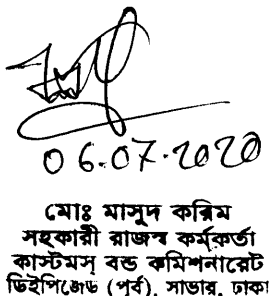 06.07.2020
মোঃ মাসুদ করিম
সহকারী রাজস্ব কর্মকর্তা
কাস্টমস্ বন্ড কমিশনারেট
ডিইপিজেড (পূর্ব), সাভার, ঢাকা